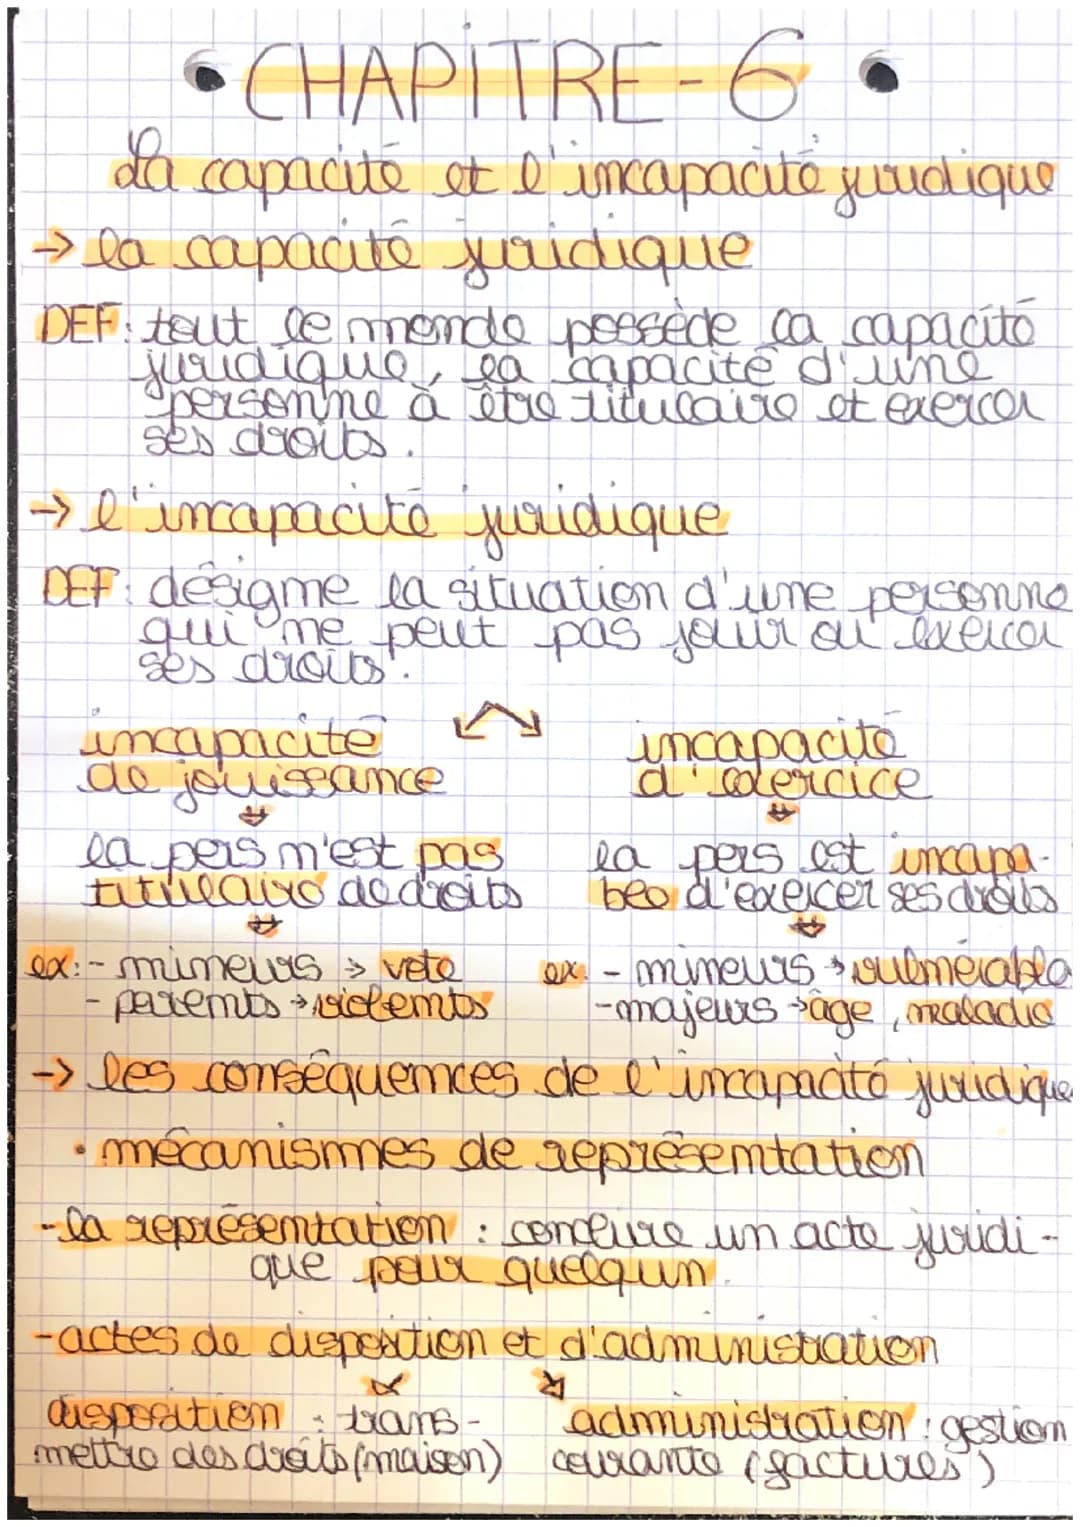 CHAPITRE-6
La capacité et l'incapacité juridique
→ la capacité juridique
DEF: tout le monde possède la capacité
juridique, la capacité d'une
personne à être titulaire et exercer
ses droits.
→ l'incapacité juridique
DEF: désigne la situation d'une personne
qui ne peut pas jouir ou exercer
ses droits.
incapacité
de jouissance
la pers n'est pas
titulaire de droits
ex: - mineurs → vote
- parents → violents
incapacité
d'exercice
la pers est incapa-
ble d'exercer ses droits
ex: - mineurs → vulnérable
- majeurs → âge, maladie
→ les conséquences de l'incapacité juridique
• mécanismes de représentation
- la représentation : conclure un acte juridi-
que pour quelqun.
- actes de disposition et d'administration
disposition : trans-
mettre des droits (maison)
administration : gestion
courante (factures)